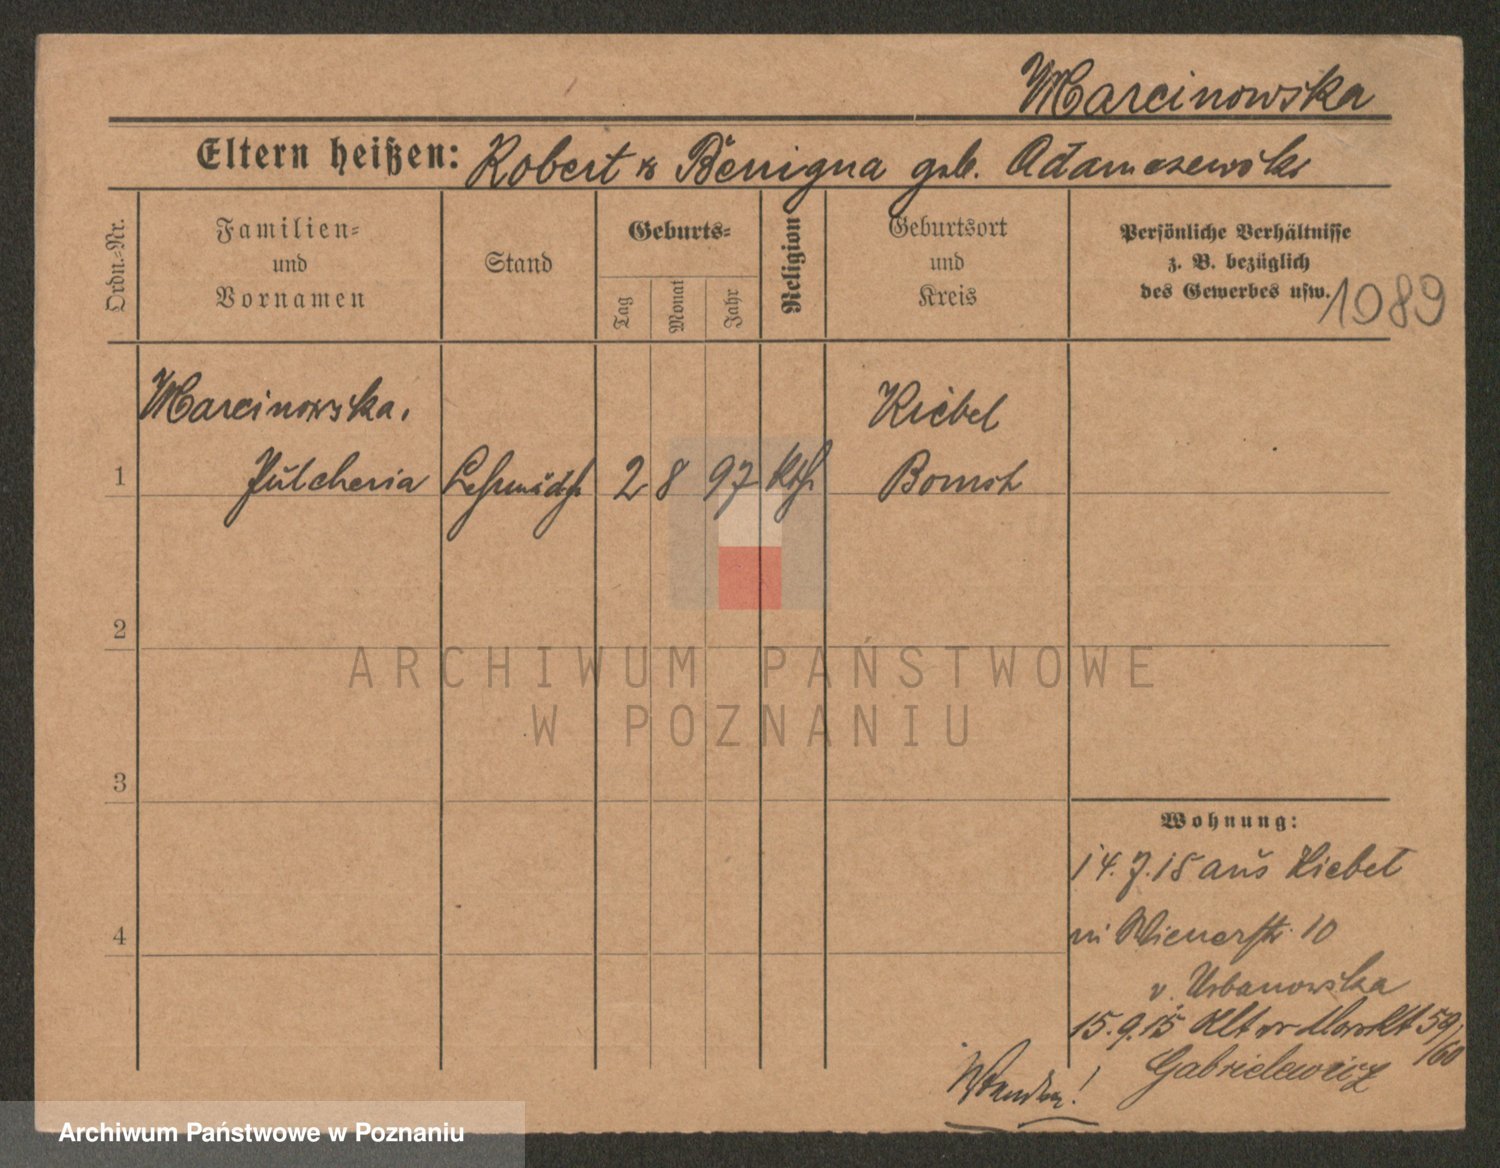 Marcinowska
Eltern heißen: Robert & Benigna geb. Adamczewska
Ordn.-Nr.
Familien-
und
Vornamen
Stand
Geburts-
Tag
Monat
Jahr
Religion
Geburtsort
und
Kreis
Persönliche Verhältnisse
z. B. bezüglich
des Gewerbes usw.
1089
Marcinowska,
Kiebel
1
Pulcheria
2
8
97
kth
Bomst
2
3
4
Wohnung:
14.7.15 aus Kiebel
Wienerstr. 10
v. Urbanowska
15.9.15 Alter Markt 59/60
Gabrielewicz
Wenden!
ARCHIWUM PAŃSTWOWE
W POZNANIU
Archiwum Państwowe w Poznaniu